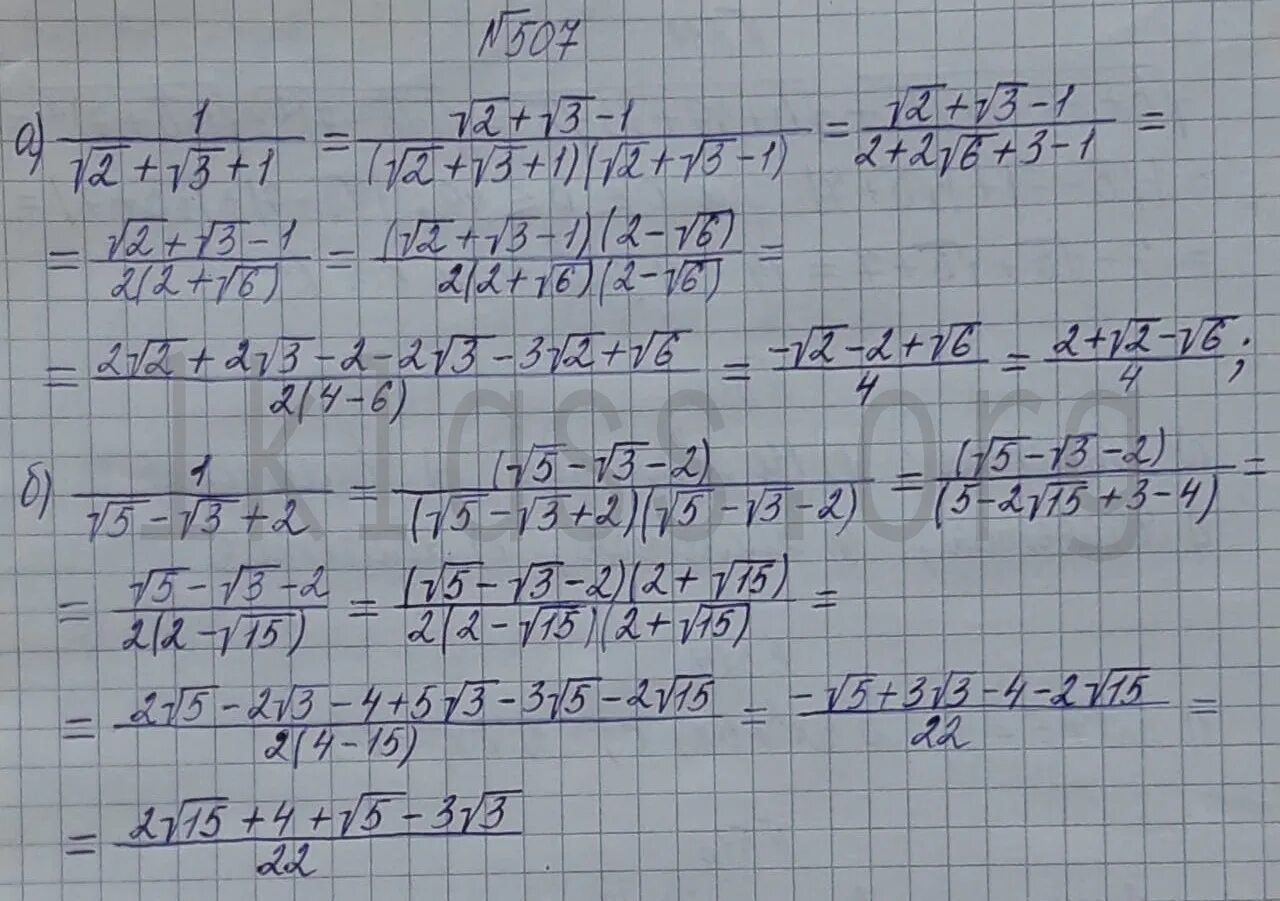 №507
а) 1/(√2+√3+1) = (√2+√3-1)/((√2+√3+1)(√2+√3-1)) = (√2+√3-1)/(2+2√6+3-1) =
= (√2+√3-1)/(2(2+√6)) = ((√2+√3-1)(2-√6))/(2(2+√6)(2-√6)) =
= (2√2+2√3-2-2√3-3√2+√6)/(2(4-6)) = (-√2-2+√6)/4 = (2+√2-√6)/4;
б) 1/(√5-√3+2) = (√5-√3-2)/((√5-√3+2)(√5-√3-2)) = (√5-√3-2)/(5-2√15+3-4) =
= (√5-√3-2)/(2(2-√15)) = ((√5-√3-2)(2+√15))/(2(2-√15)(2+√15)) =
= (2√5-2√3-4+5√3-3√5-2√15)/(2(4-15)) = (-√5+3√3-4-2√15)/22 =
= (2√15+4+√5-3√3)/22
lklass.org